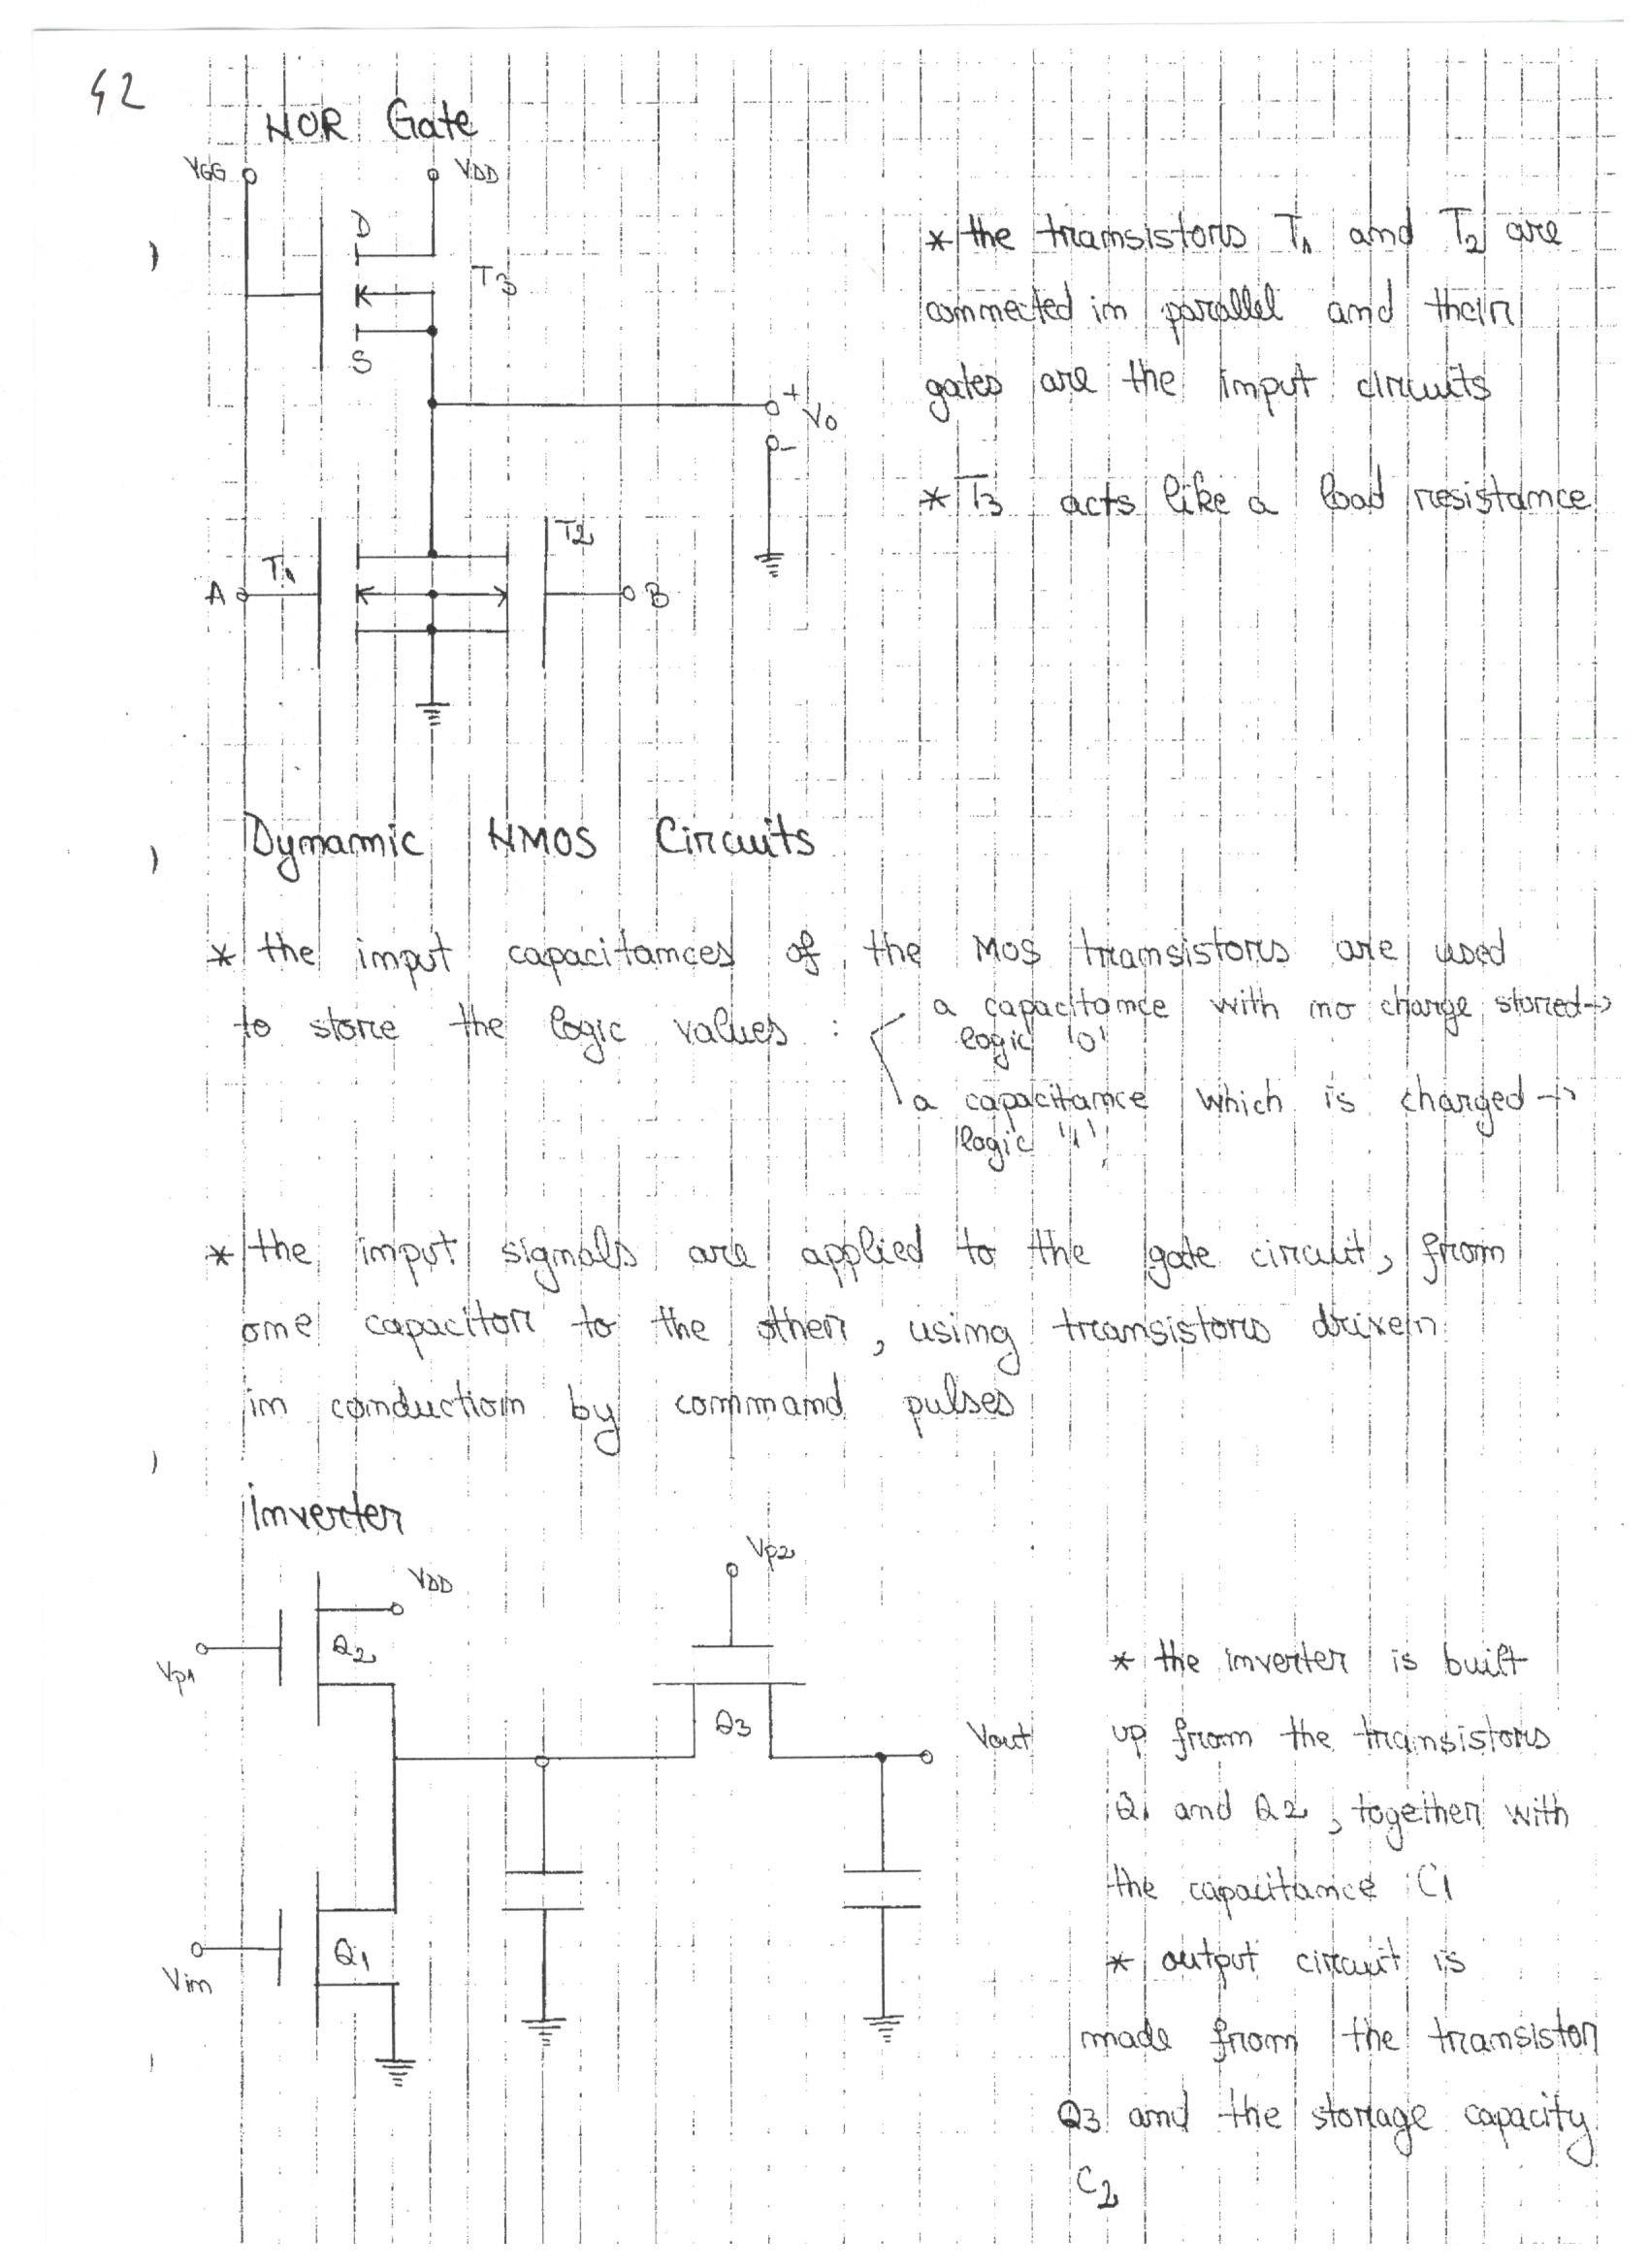 42
NOR Gate
VGG
VDD
D
T3
S
+
Vo
-
T1
T2
A
B
* the transistors T1 and T2 are
connected in parallel and their
gates are the input circuits
* T3 acts like a load resistance
Dynamic NMOS Circuits
* the input capacitances of the MOS transistors are used
to store the logic values :
a capacitance with no charge stored →
logic '0'
a capacitance which is charged →
logic '1'
* the input signals are applied to the gate circuit, from
one capacitor to the other, using transistors driven
in conduction by command pulses
Inverter
Vp2
VDD
Q2
Vp1
Q3
Vout
Q1
Vin
* the inverter is built
up from the transistors
Q1 and Q2, together with
the capacitance C1
* output circuit is
made from the transistor
Q3 and the storage capacity
C2